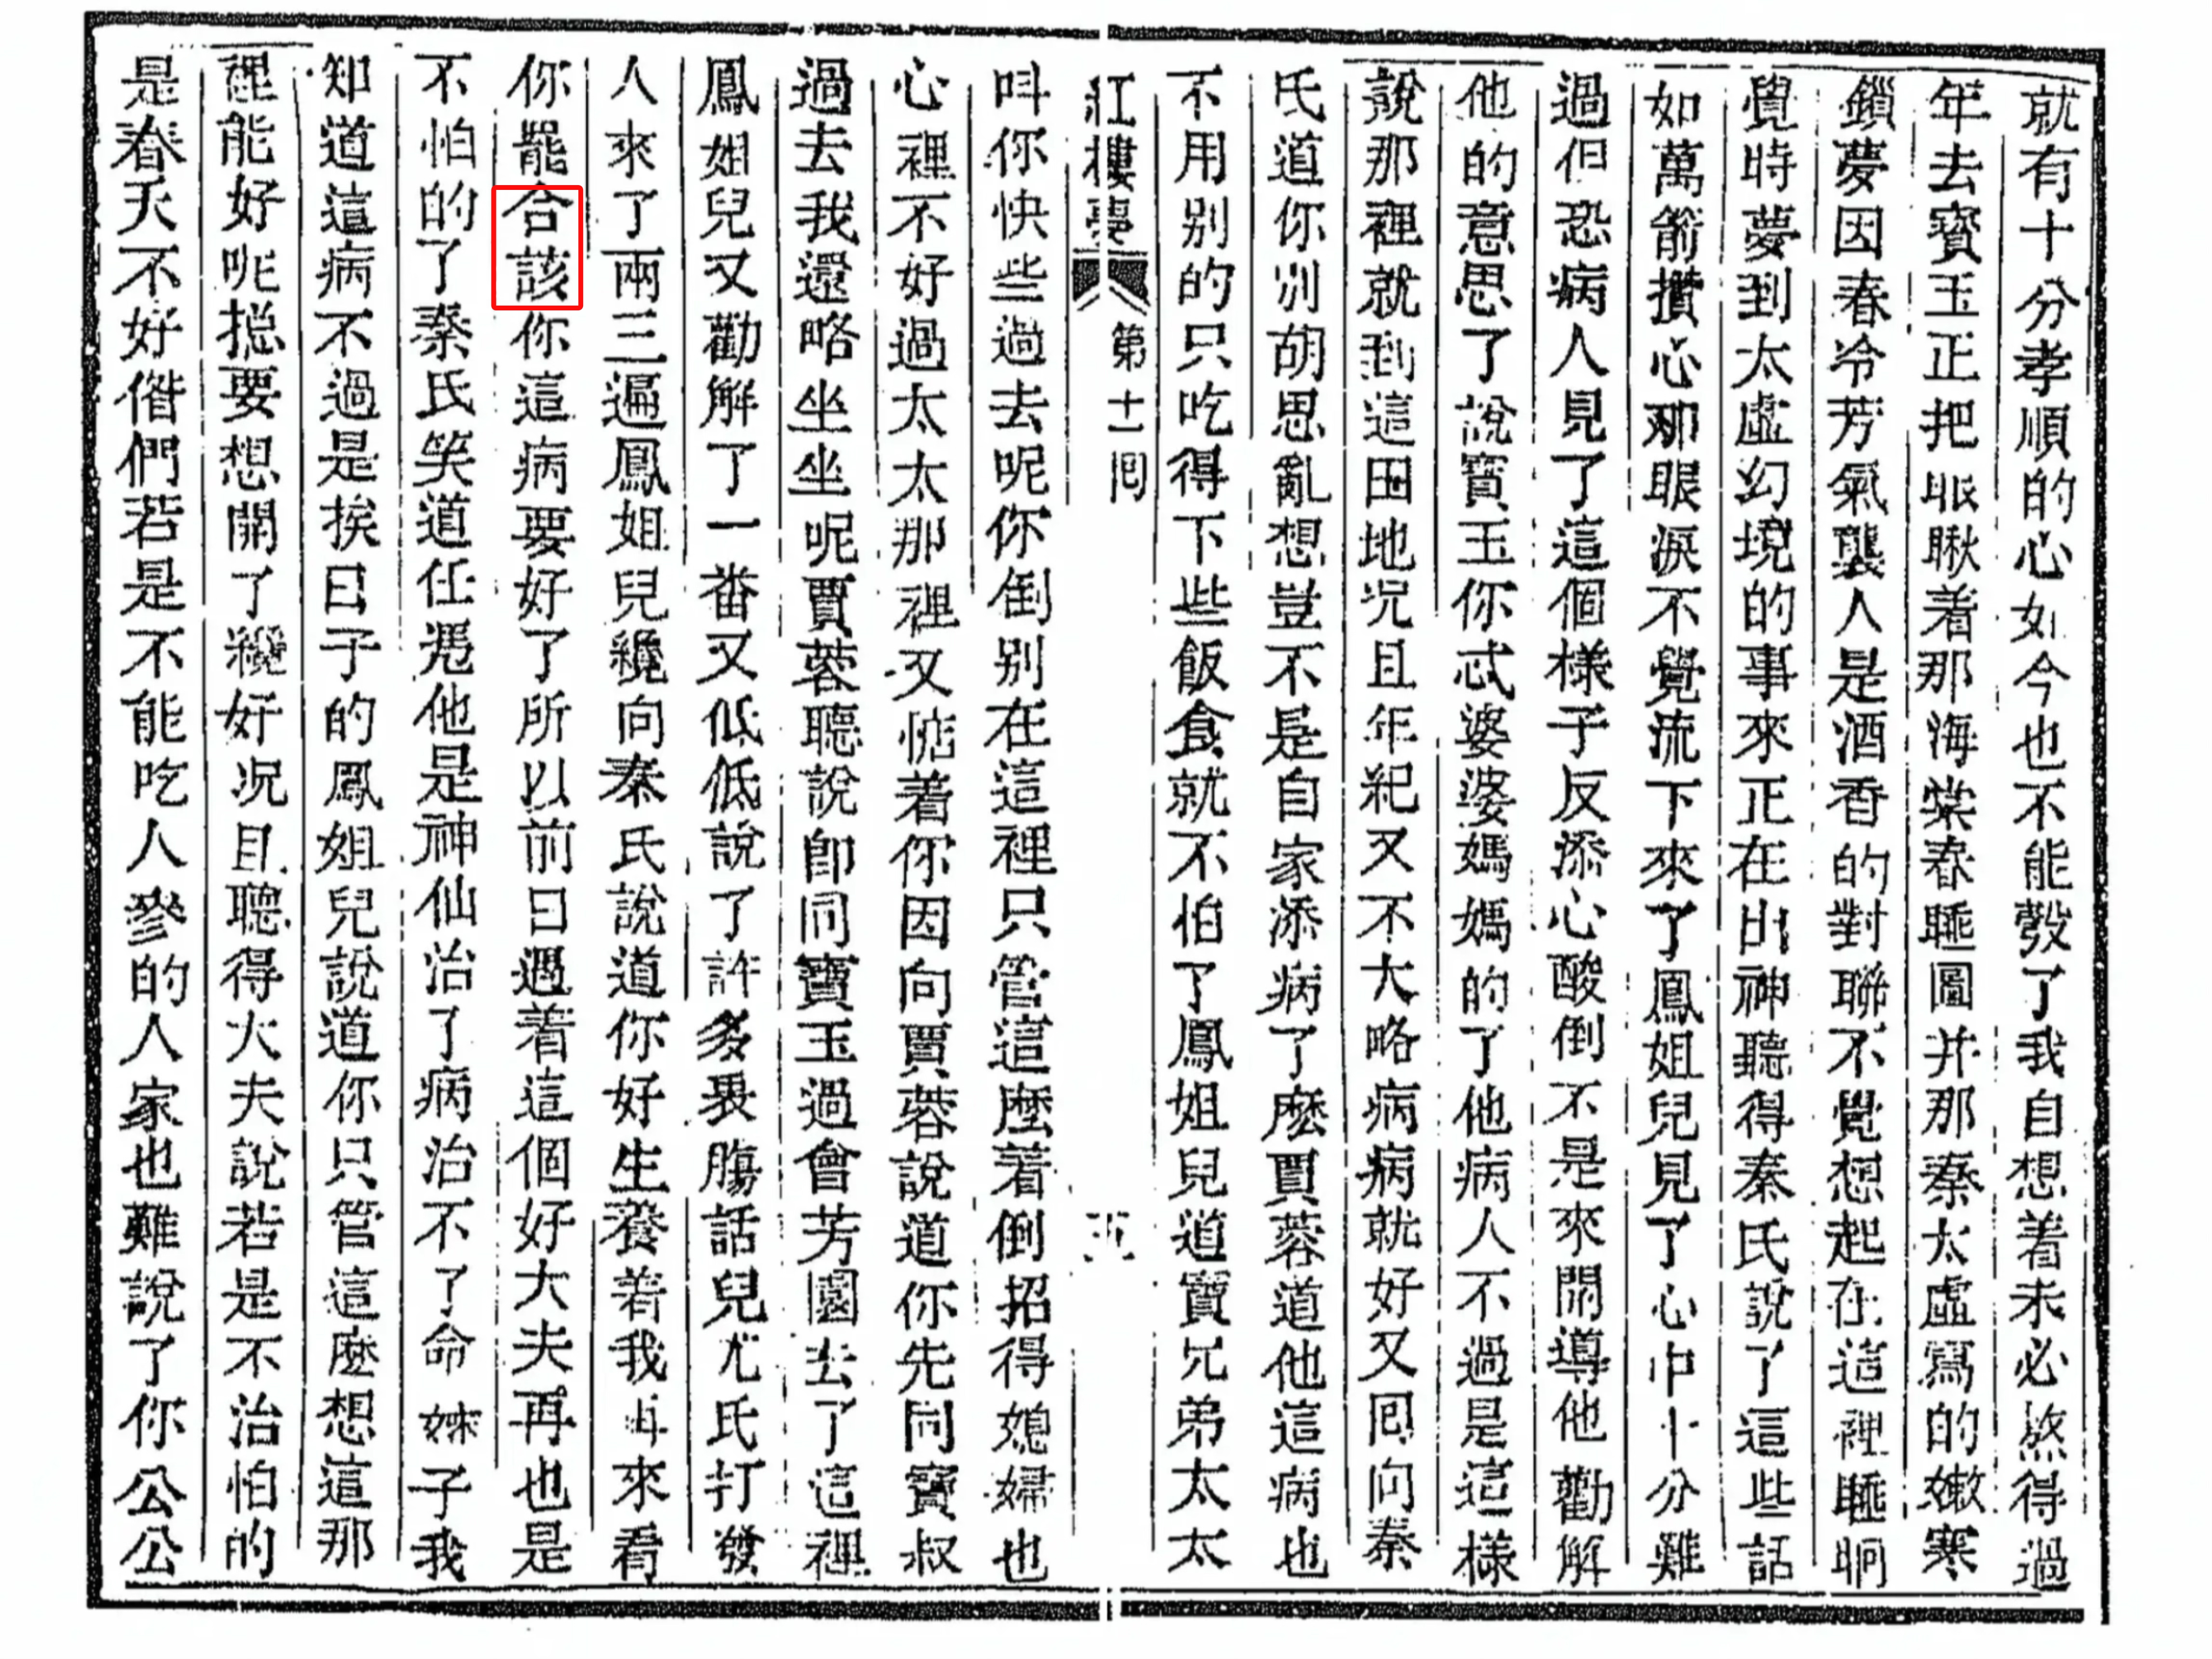 就有十分孝順的心如今也不能彀了我自想着未必熬得過
年去寳玉正把眼瞅着那海棠春睡圖并那秦太虛寫的嫩寒
鎖夢因春冷芳氣襲人是酒香的對聯不覺想起在這裡睡晌
覺時夢到太虛幻境的事來正在出神聽得秦氏說了這些話
如萬箭攢心那眼淚不覺流下來了鳳姐兒見了心中十分難
過但恐病人見了這個樣子反添心酸倒不是來開導他勸解
他的意思了說寳玉你忒婆婆媽媽的了他病人不過是這樣
說那裡就到這田地况且年紀又不大略病病就好又囘向秦
氏道你別胡思亂想豈不是自家添病了麽賈蓉道他這病也
不用別的只吃得下些飯食就不怕了鳳姐兒道寳兄弟太太
紅樓夢 第十一囘 五
叫你快些過去呢你倒別在這裡只管這麽着倒招得媳婦也
心裡不好過太太那裡又惦着你因向賈蓉說道你先同寳叔
過去我還略坐坐呢賈蓉聽說卽同寳玉過會芳園去了這裡
鳳姐兒又勸解了一番又低低說了許多衷腸話兒尤氏打發
人來了兩三遍鳳姐兒纔向秦氏說道你好生養着我再來看
你罷合該你這病要好了所以前日遇着這個好大夫再也是
不怕的了秦氏笑道任凭他是神仙治了病治不了命嬸子我
知道這病不過是挨日子的鳳姐兒說道你只管這麽想這那
裡能好呢揔要想開了纔好况且聽得大夫說若是不治怕的
是春天不好偺們若是不能吃人參的人家也難說了你公公